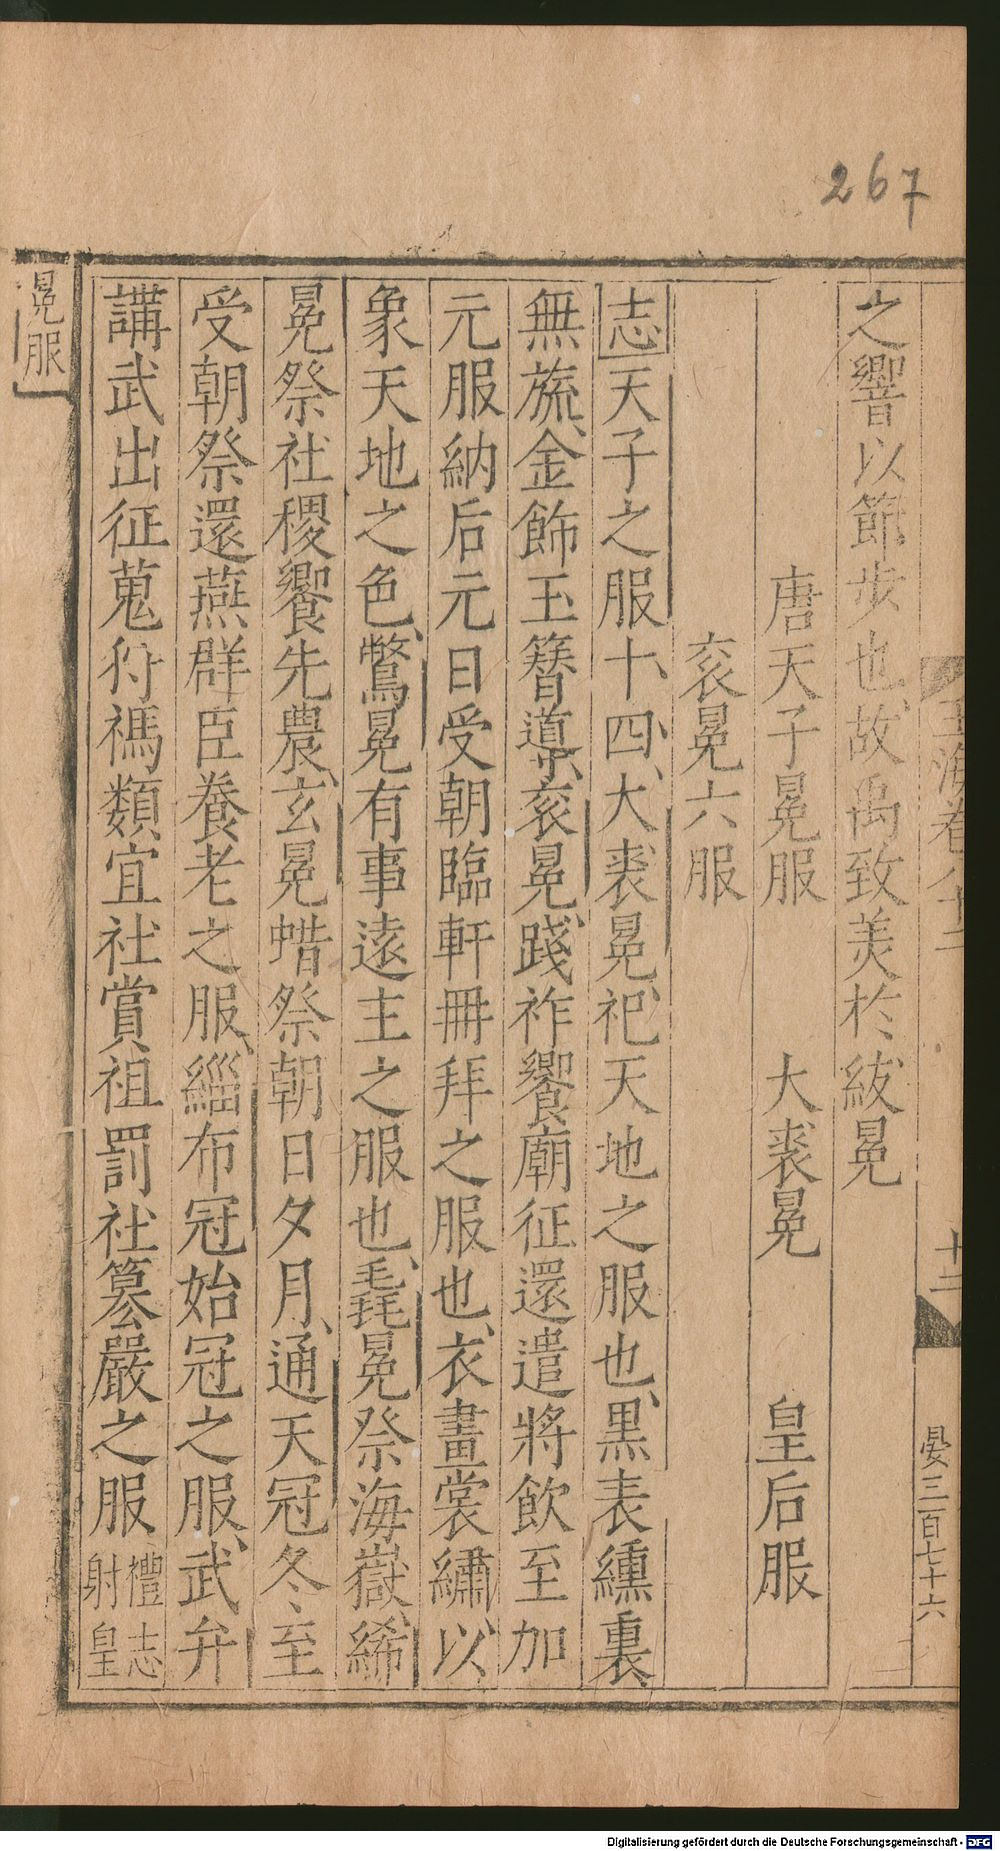 267
玉海卷八十二
十二
晏三百七十六
之響以節步也故禹致美於紱冕
唐天子冕服 大裘冕 皇后服
衮冕六服
志天子之服十四大裘冕祀天地之服也黒表纁裏
無旒金飾玉簪導衮冕踐祚饗廟征還遣將飲至加
元服納后元日受朝臨軒冊拜之服也衣畫裳繡以
象天地之色鷩冕有事逺主之服也毳冕祭海嶽絺
冕祭社稷饗先農玄冕蜡祭朝日夕月通天冠冬至
受朝祭還燕群臣養老之服緇布冠始冠之服武弁
講武出征蒐狩禡類宜社賞祖罰社篡嚴之服禮志
射皇
冕服
Digitalisierung gefördert durch die Deutsche Forschungsgemeinschaft - DFG